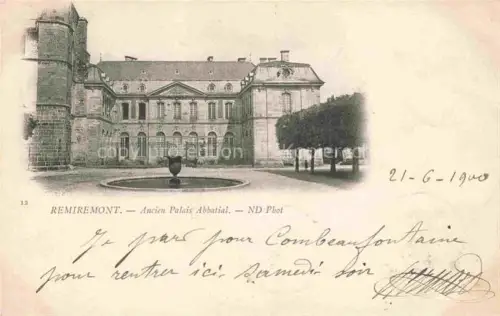 21-6-1900
12
REMIREMONT. — Ancien Palais Abbatial. — ND Phot
Je pars pour Combeaufontaine
pour rentrer ici samedi soir